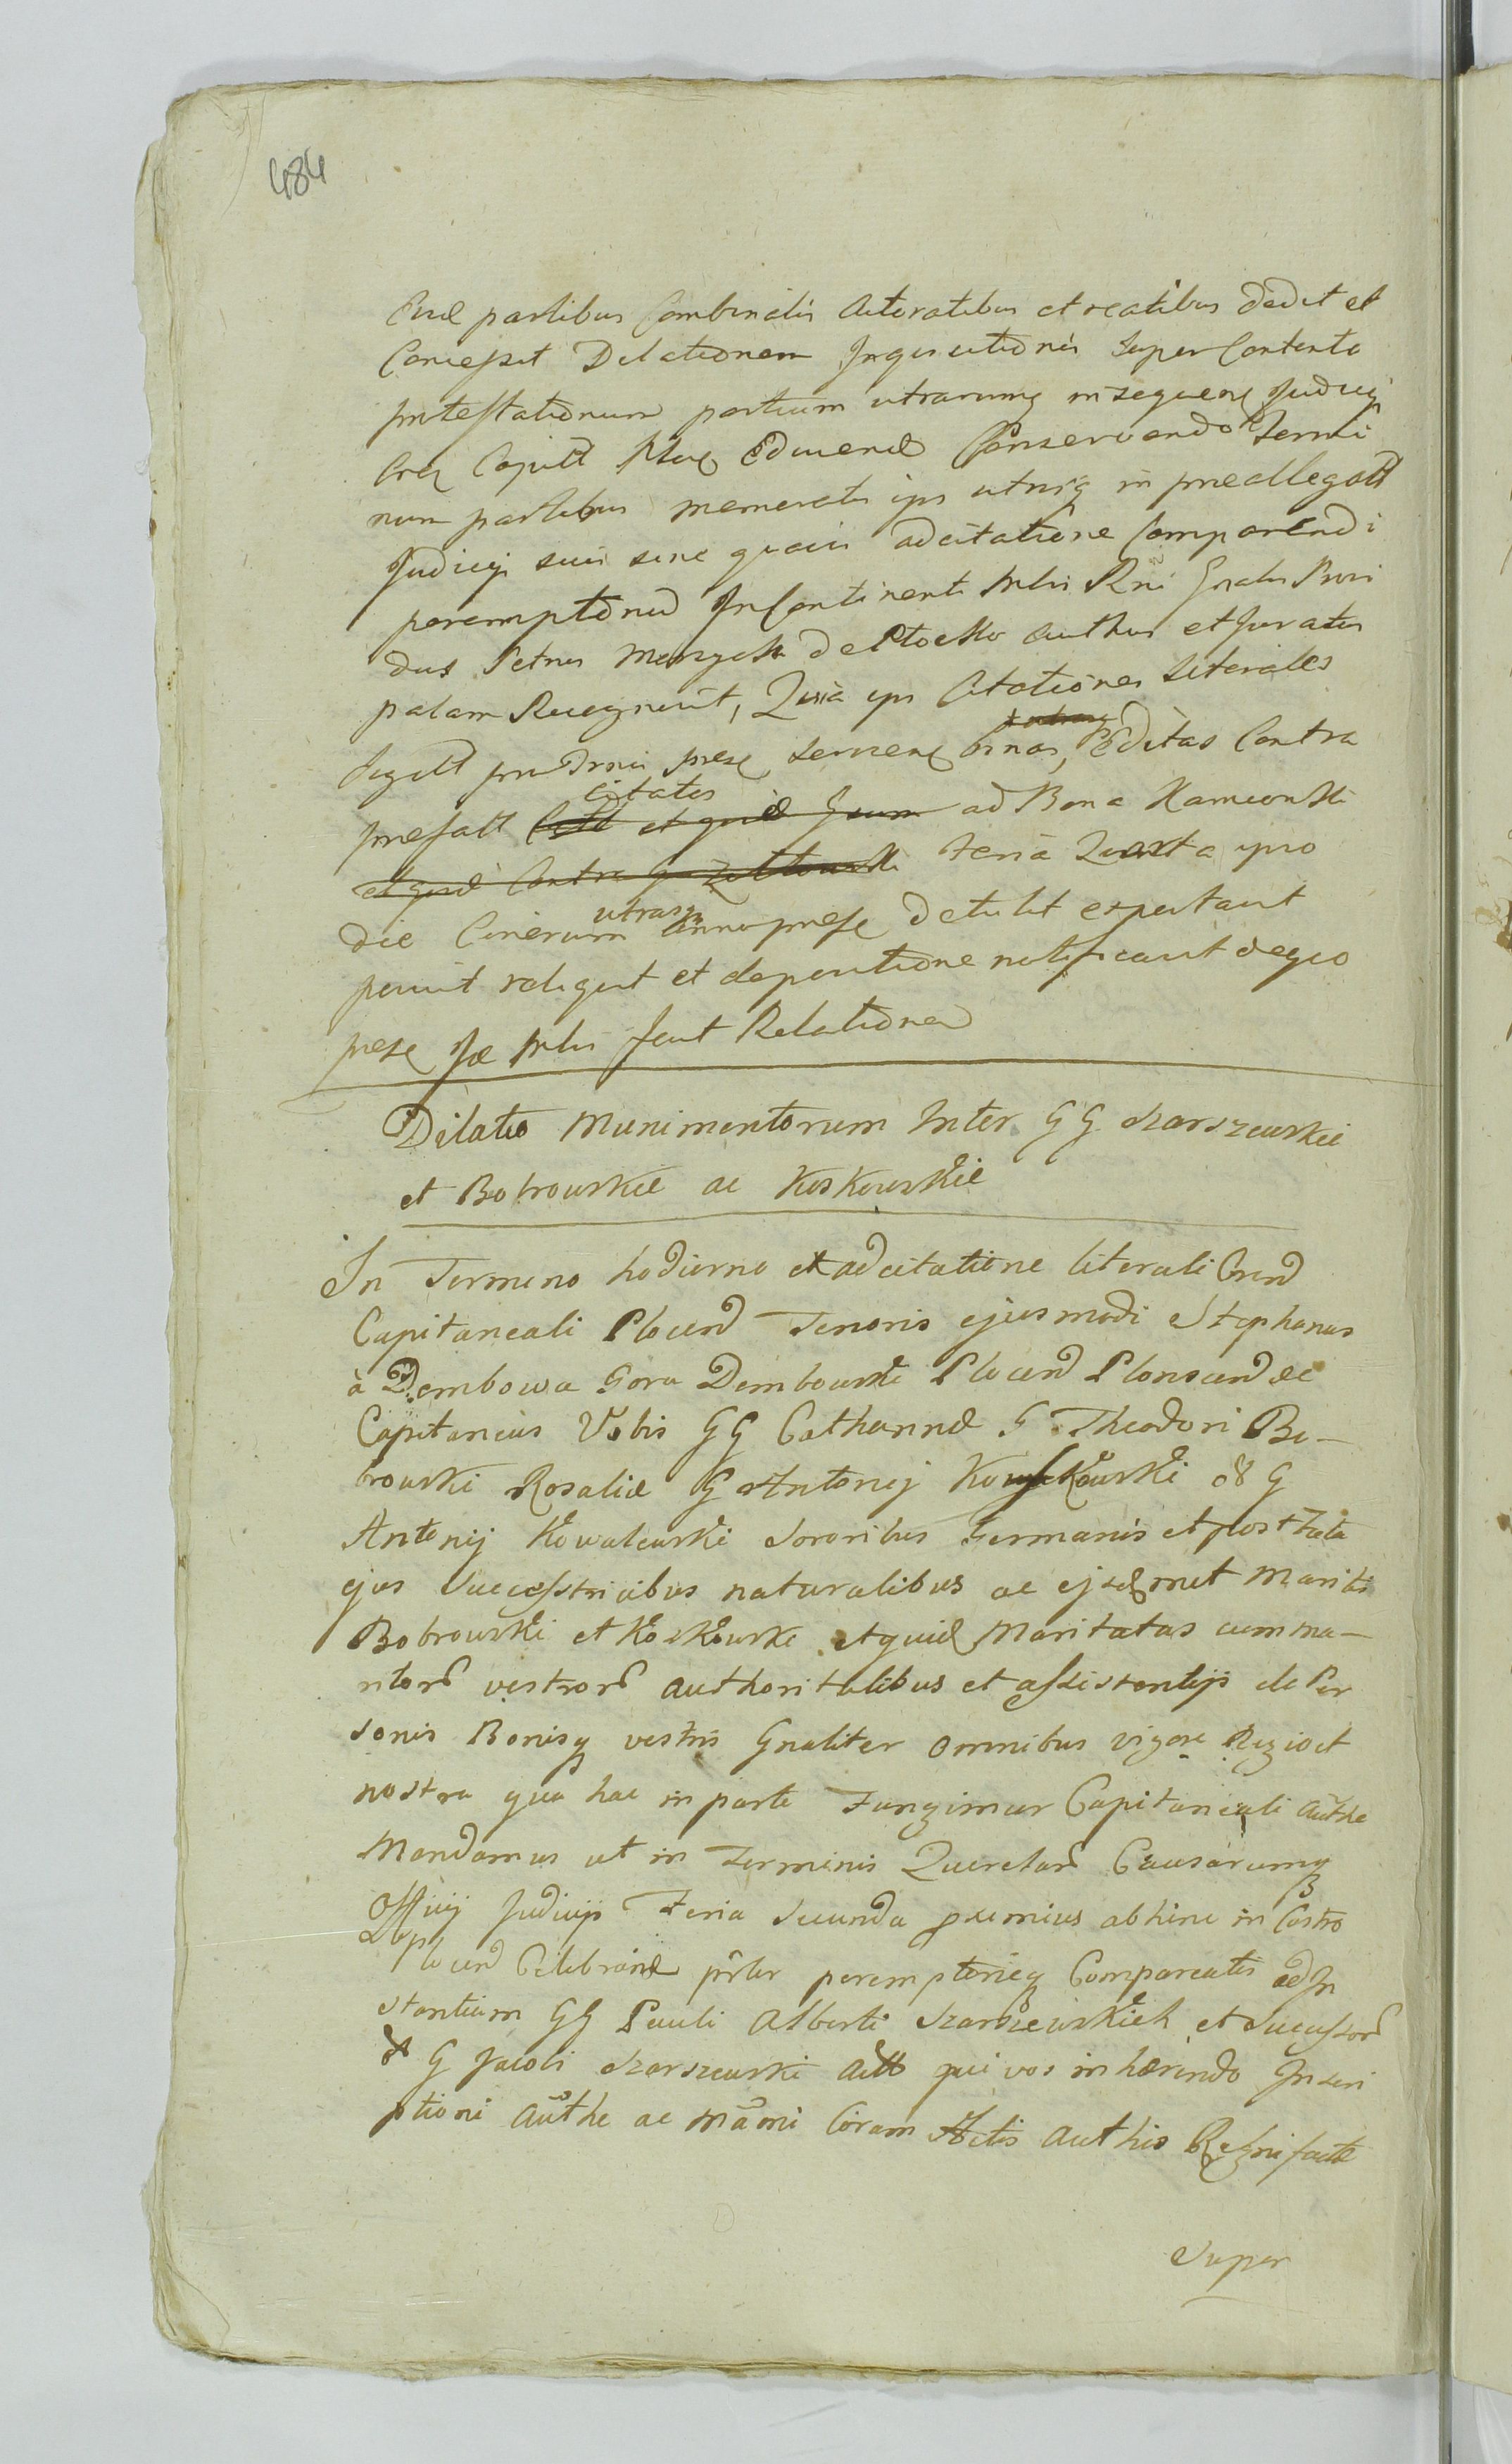 484
partibus Combinatis Actoratibus et reatibus dedit et
Concessit Dilationem Inquisitionis super Contenta
protestationum partium utrarumq in sequenq Judicijs
Capitt Ploc Educend Conservando Termi
num partibus memoratis ips utrisq in preallegatt
Judicijs suis sine quavis adcitatione Comparendi
peremptorium Incontinenti Mlris Rni Gnalis Provi
dus Petrus de Plocko Authus et Juratus
palam Recognovit, Quia ips Citationes literales
Sigill prese binas, Editas Contra
prefatt citatos ad Bona Kamionski
Feria Quarta ipso
die Cinerum utrasq Anno prese detulit
posuit reliquit et de positione notificavit de quo
prese suam fecit Relationem
Dilatio Munimentorum Inter GG Szarszewskie
et Bobrowskie ac Koskowskie
In Termino hodierno et adcitatione literali Cren
Capitaneali Plocen Tenoris ejusmodi Stephanus
à Dembowa Gora Dembowski Plocen Plonscen &c
Capitaneus Vobis GG Catharinæ G Theodori Bo-
browski Rosaliæ G Antonij Kowskowski G
Antonij Kowalewski Sororibus Germanis et post Fata
ejus Successtricibus naturalibus ac ejusdmet Mariti
Bobrowski et Koskowski et quid Maritatas cum ma-
ritor vestror authoritatibus et assistentijs de Per
sonis Bonisq vestris Gnaliter omnibus vigore Regio et
nostra qua hac in parte Fungimur Capitaneali authe
Mandamus ut in Terminis Querelar Causarumq
Officij Judicijs Feria Secunda proxmius abhinc in Castro
Plocen Celebrand prlter peremptorieq Compareatis ad In
stantiam GG Pauli Alberti Szarszewskich et Successor
G Jacobi Szarszewski Actt qui vos inhærendo Inscri
ptioni authe ac manii Coram Actis Authis Regni factæ
Super